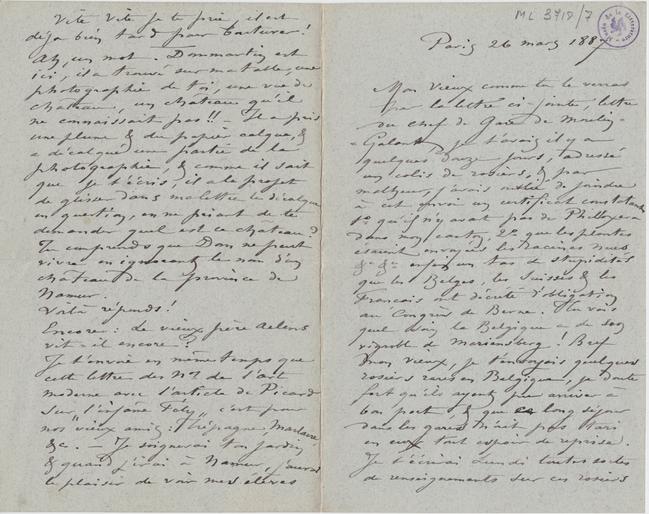 ML 3718/7
Paris 26 mars 1887
Mon vieux comme tu le verras
par la lettre ci-jointe, lettre
du chef de Gare de Moulin-
-Galant, je t'avais il y a
quelques douze jours, adressé
un colis de rosiers, & par
malheur, j'avais oublié de joindre
à cet envoi un certificat constatant
1º qu'il n'y avait pas de Phylloxera
dans mon canton, 2º que les plantes
étaient envoyées les racines nues
&ª &ª enfin un tas de stupidités
que les Belges, les Suisses & les
Français ont décrété d'obligation
au Congrès de Berne. Tu vois
quel soin la Belgique a de son
vignoble de Mariensbourg ! Bref
mon vieux, je t'envoyais quelques
rosiers rares en Belgique, je doute
fort qu'ils ayent pu arriver à
bon port & que ce long séjour
dans les gares n'ait pas tari
en eux tout espoir de reprise.
Je t'écrirai Lundi toutes sortes
de renseignements sur ces rosiers
Vite Vite je te prie, il est
déjà bien tard pour
Ah, un mot. Dommartin est
ici, il a trouvé sur ma table, une
photographie de toi, une vue de
château, un château qu'il
ne connaissait pas !! – Il a pris
une plume & du papier calque, &
a décalqué une partie de la
photographie, & comme il sait
que je t'écris, il a le projet
de glisser dans ma lettre le décalque
en question, en me priant de te
demander quel est ce château ?
Tu comprends que Dom ne peut
vivre en ignorant le nom d'un
château de la province de
Namur.
Voilà réponds !
Encore : Le vieux père
vit-il encore ?
Je t'envoie en même temps que
cette lettre des Nos de l'art
moderne avec l'article de Picard
sur "l'infâme Fely" c'est pour
nos vieux amis
&c. – Je soignerai ton jardin
& quand j'irai à Namur, j'aurai
le plaisir de voir mes élèves